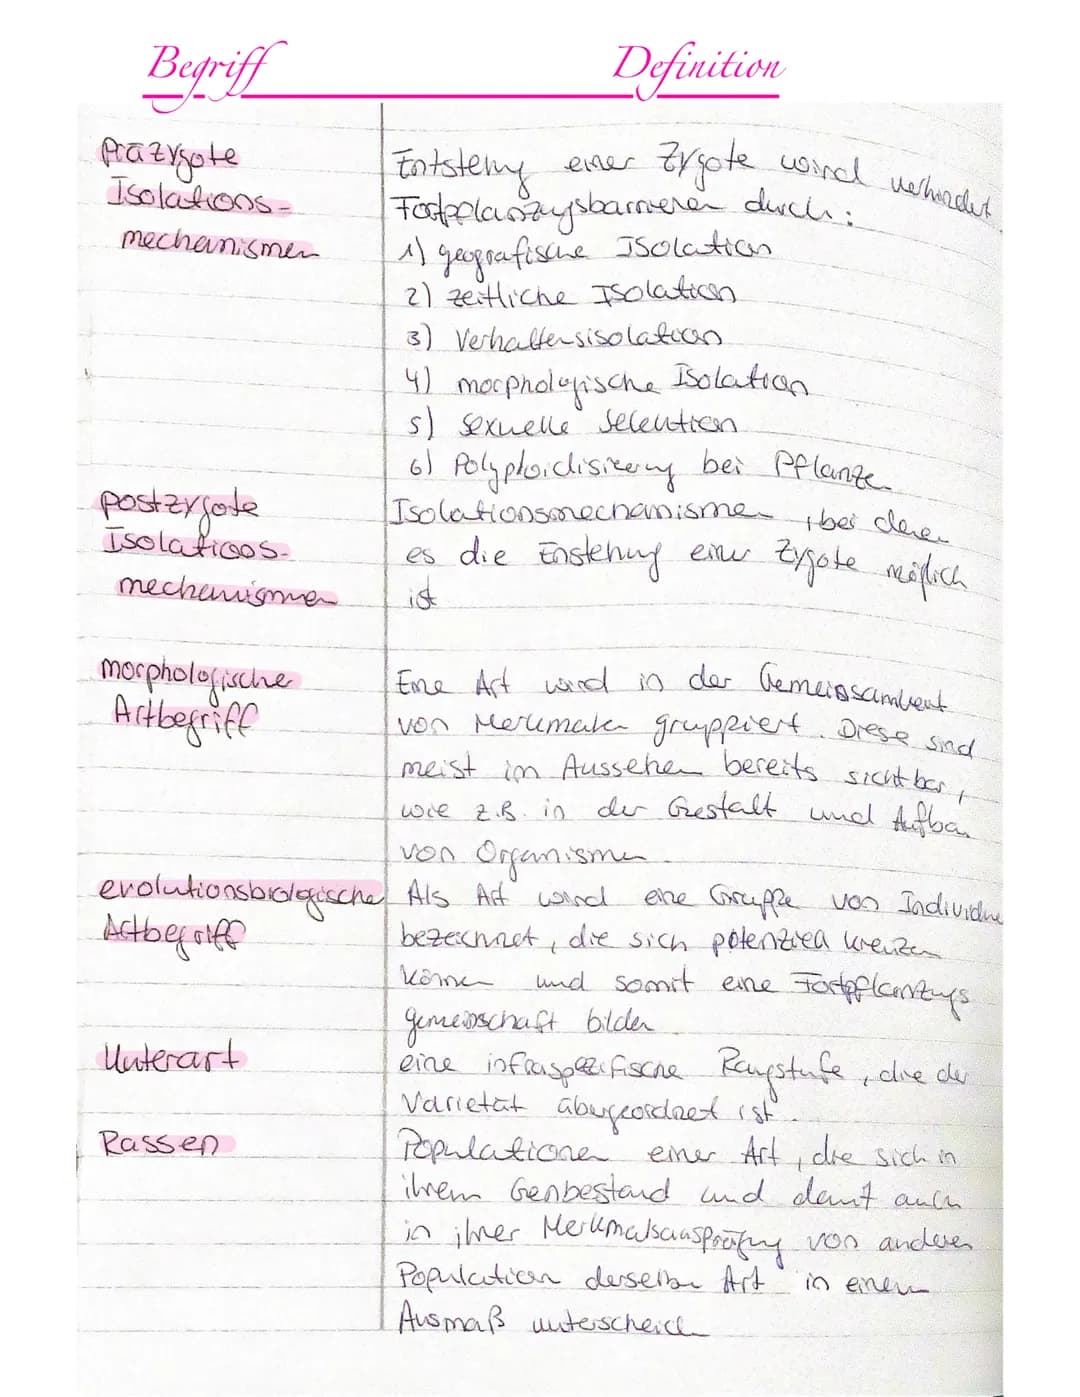 Begriff Definition
präzygote
Isolations-
mechanismen
Entstehung einer Zygote wird verhindert
Fortpflanzungsbarrieren durch:
1) geografische Isolation
2) zeitliche Isolation
3) Verhaltensisolation
4) morphologische Isolation
5) sexuelle Selektion
6) Polyploidisierung bei Pflanzen
postzygote
Isolations-
mechanismen
Isolationsmechanismen, bei denen
es die Enstehung einer Zygote möglich
ist
morphologische
Artbegriff
Eine Art wird in der Gemeinsamkeit
von Merkmalen gruppiert. Diese sind
meist im Aussehen bereits sichtbar,
wie z.B. in der Gestalt und Aufbau
von Organismen
evolutionsbiologische
Artbegriff
Als Art wird eine Gruppe von Individuen
bezeichnet, die sich potenziell kreuzen
können und somit eine Fortpflanzungs
gemeinschaft bilden
Unterart
eine infraspezifische Rangstufe, die der
Varietät übergeordnet ist.
Rassen
Populationen einer Art, die sich in
ihrem Genbestand und damit auch
in ihrer Merkmalsausprägung von anderen
Population derselben Art in einem
Ausmaß unterscheiden